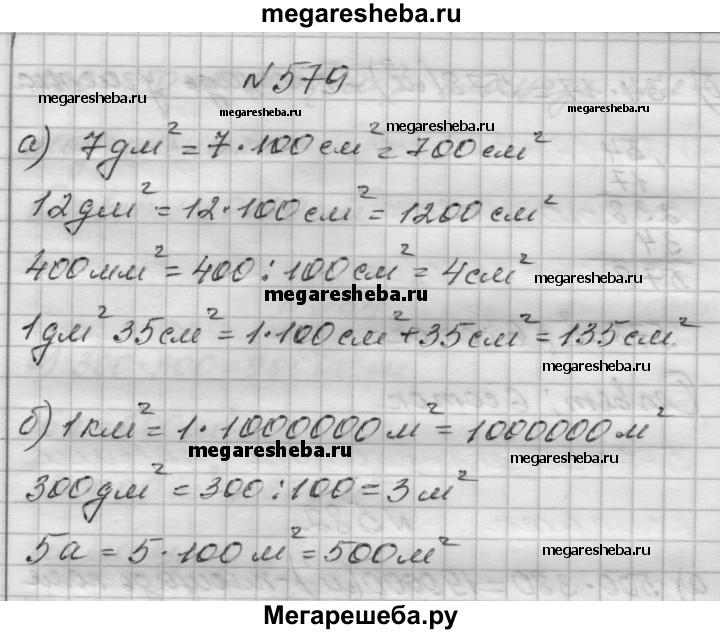 megaresheba.ru
№579
megaresheba.ru megaresheba.ru megaresheba.ru
megaresheba.ru
а) 7дм² = 7·100см² = 700см²
12дм² = 12·100см² = 1200см²
400мм² = 400:100см² = 4см²
megaresheba.ru
megaresheba.ru
1дм² 35см² = 1·100см² + 35см² = 135см²
megaresheba.ru
б) 1км² = 1·1000000м² = 1000000м²
megaresheba.ru
megaresheba.ru
300дм² = 300:100 = 3м²
5а = 5·100м² = 500м²
megaresheba.ru
Мегарешеба.ру